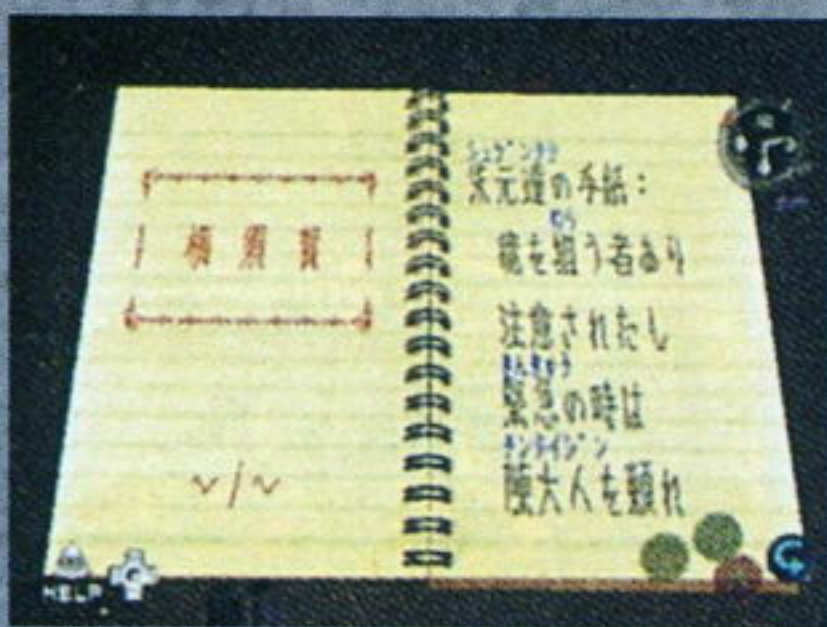 横須賀
シュゲンタツ
朱元達の手紙：
ねら
竜を狙う者あり
注意されたし
きんきゅう
緊急の時は
チンタイジン
陳大人を頼れ
HELP